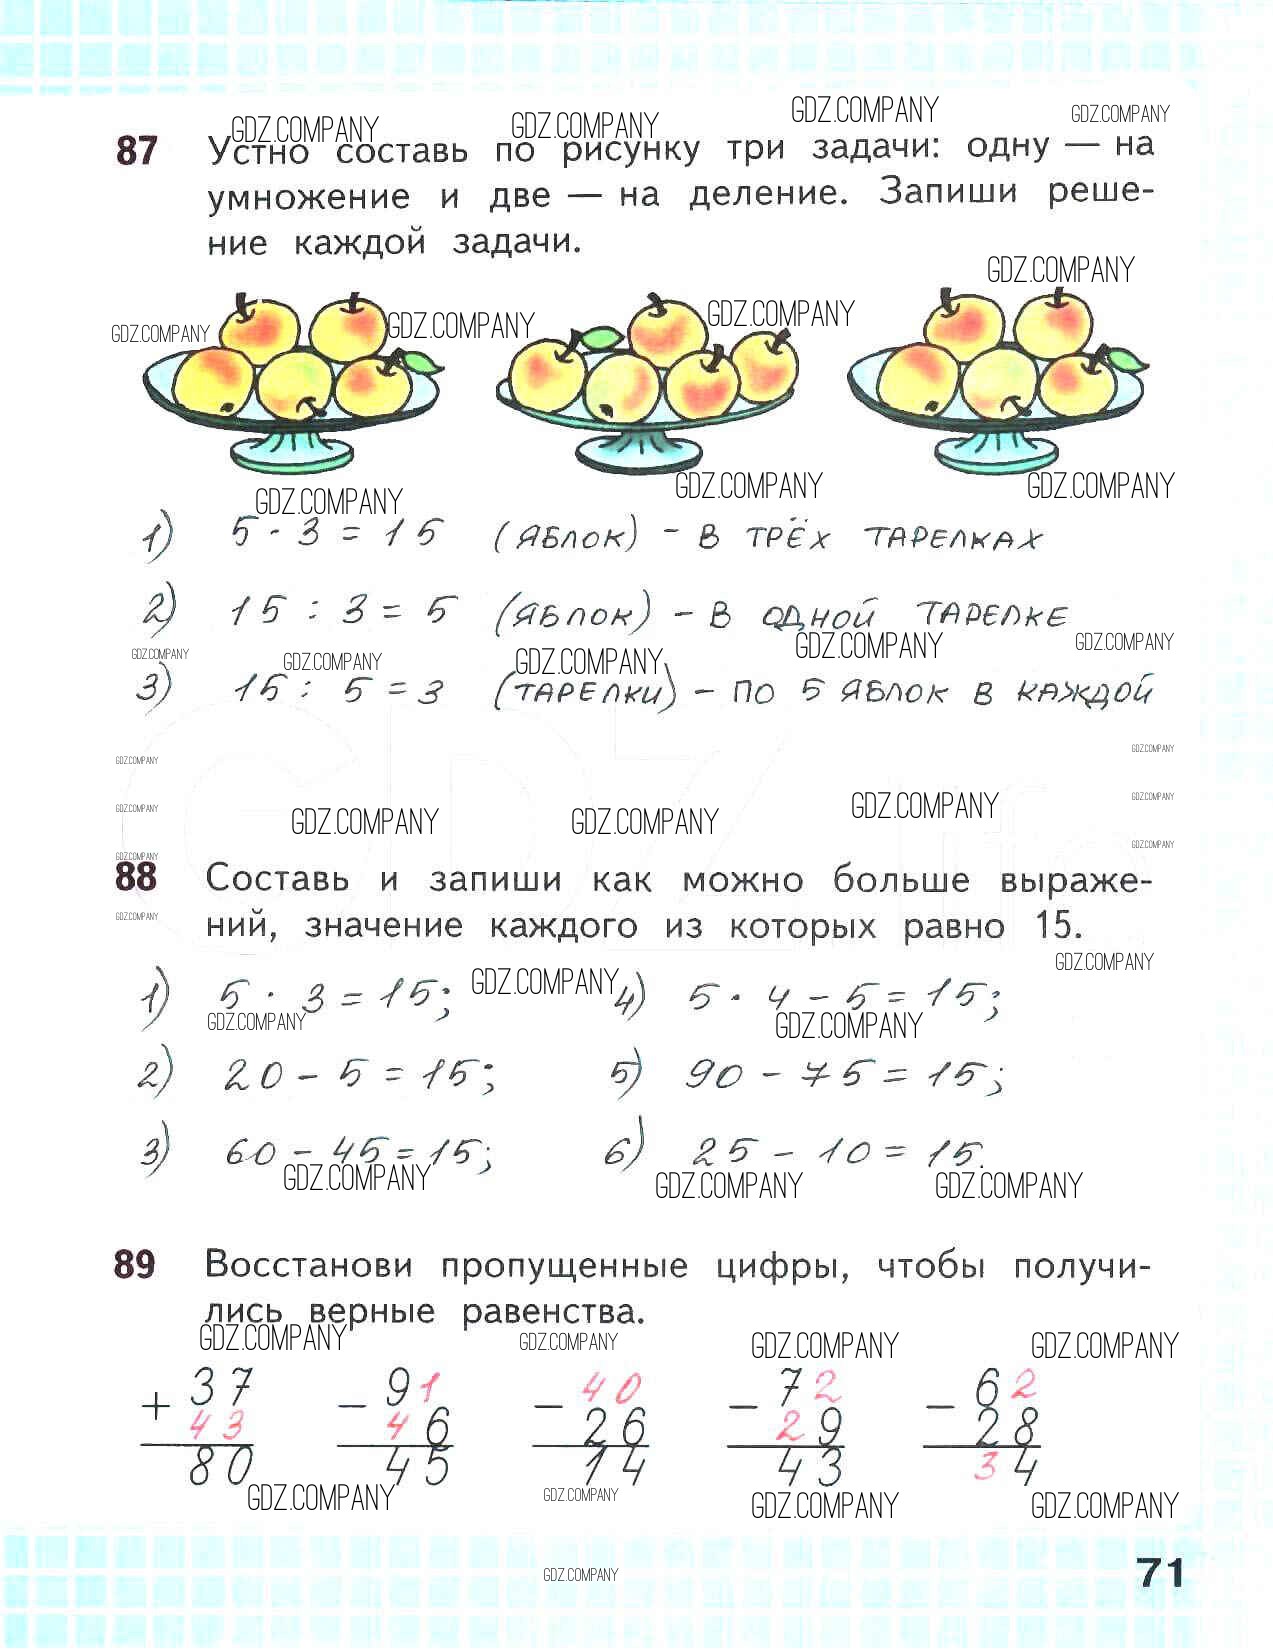 GDZ.COMPANY GDZ.COMPANY GDZ.COMPANY GDZ.COMPANY
87 Устно составь по рисунку три задачи: одну — на
умножение и две — на деление. Запиши реше-
ние каждой задачи.
GDZ.COMPANY
GDZ.COMPANY GDZ.COMPANY GDZ.COMPANY
GDZ.COMPANY GDZ.COMPANY GDZ.COMPANY
1) 5 · 3 = 15 (яблок) - в трёх тарелках
2) 15 : 3 = 5 (яблок) - в одной тарелке
GDZ.COMPANY GDZ.COMPANY GDZ.COMPANY GDZ.COMPANY GDZ.COMPANY
3) 15 : 5 = 3 (тарелки) - по 5 яблок в каждой
GDZ.COMPANY GDZ.COMPANY
GDZ.COMPANY GDZ.COMPANY
GDZ.COMPANY GDZ.COMPANY GDZ.COMPANY
GDZ.COMPANY GDZ.COMPANY
88 Составь и запиши как можно больше выраже-
ний, значение каждого из которых равно 15.
GDZ.COMPANY
GDZ.COMPANY
1) 5 · 3 = 15; GDZ.COMPANY 4) 5 · 4 - 5 = 15;
GDZ.COMPANY GDZ.COMPANY
2) 20 - 5 = 15; 5) 90 - 75 = 15;
3) 60 - 45 = 15; 6) 25 - 10 = 15.
GDZ.COMPANY GDZ.COMPANY GDZ.COMPANY
89 Восстанови пропущенные цифры, чтобы получи-
лись верные равенства.
GDZ.COMPANY GDZ.COMPANY GDZ.COMPANY GDZ.COMPANY
+ 37 - 91 - 40 - 72 - 62
43 46 26 29 28
80 45 14 43 34
GDZ.COMPANY GDZ.COMPANY GDZ.COMPANY GDZ.COMPANY
GDZ.COMPANY
71